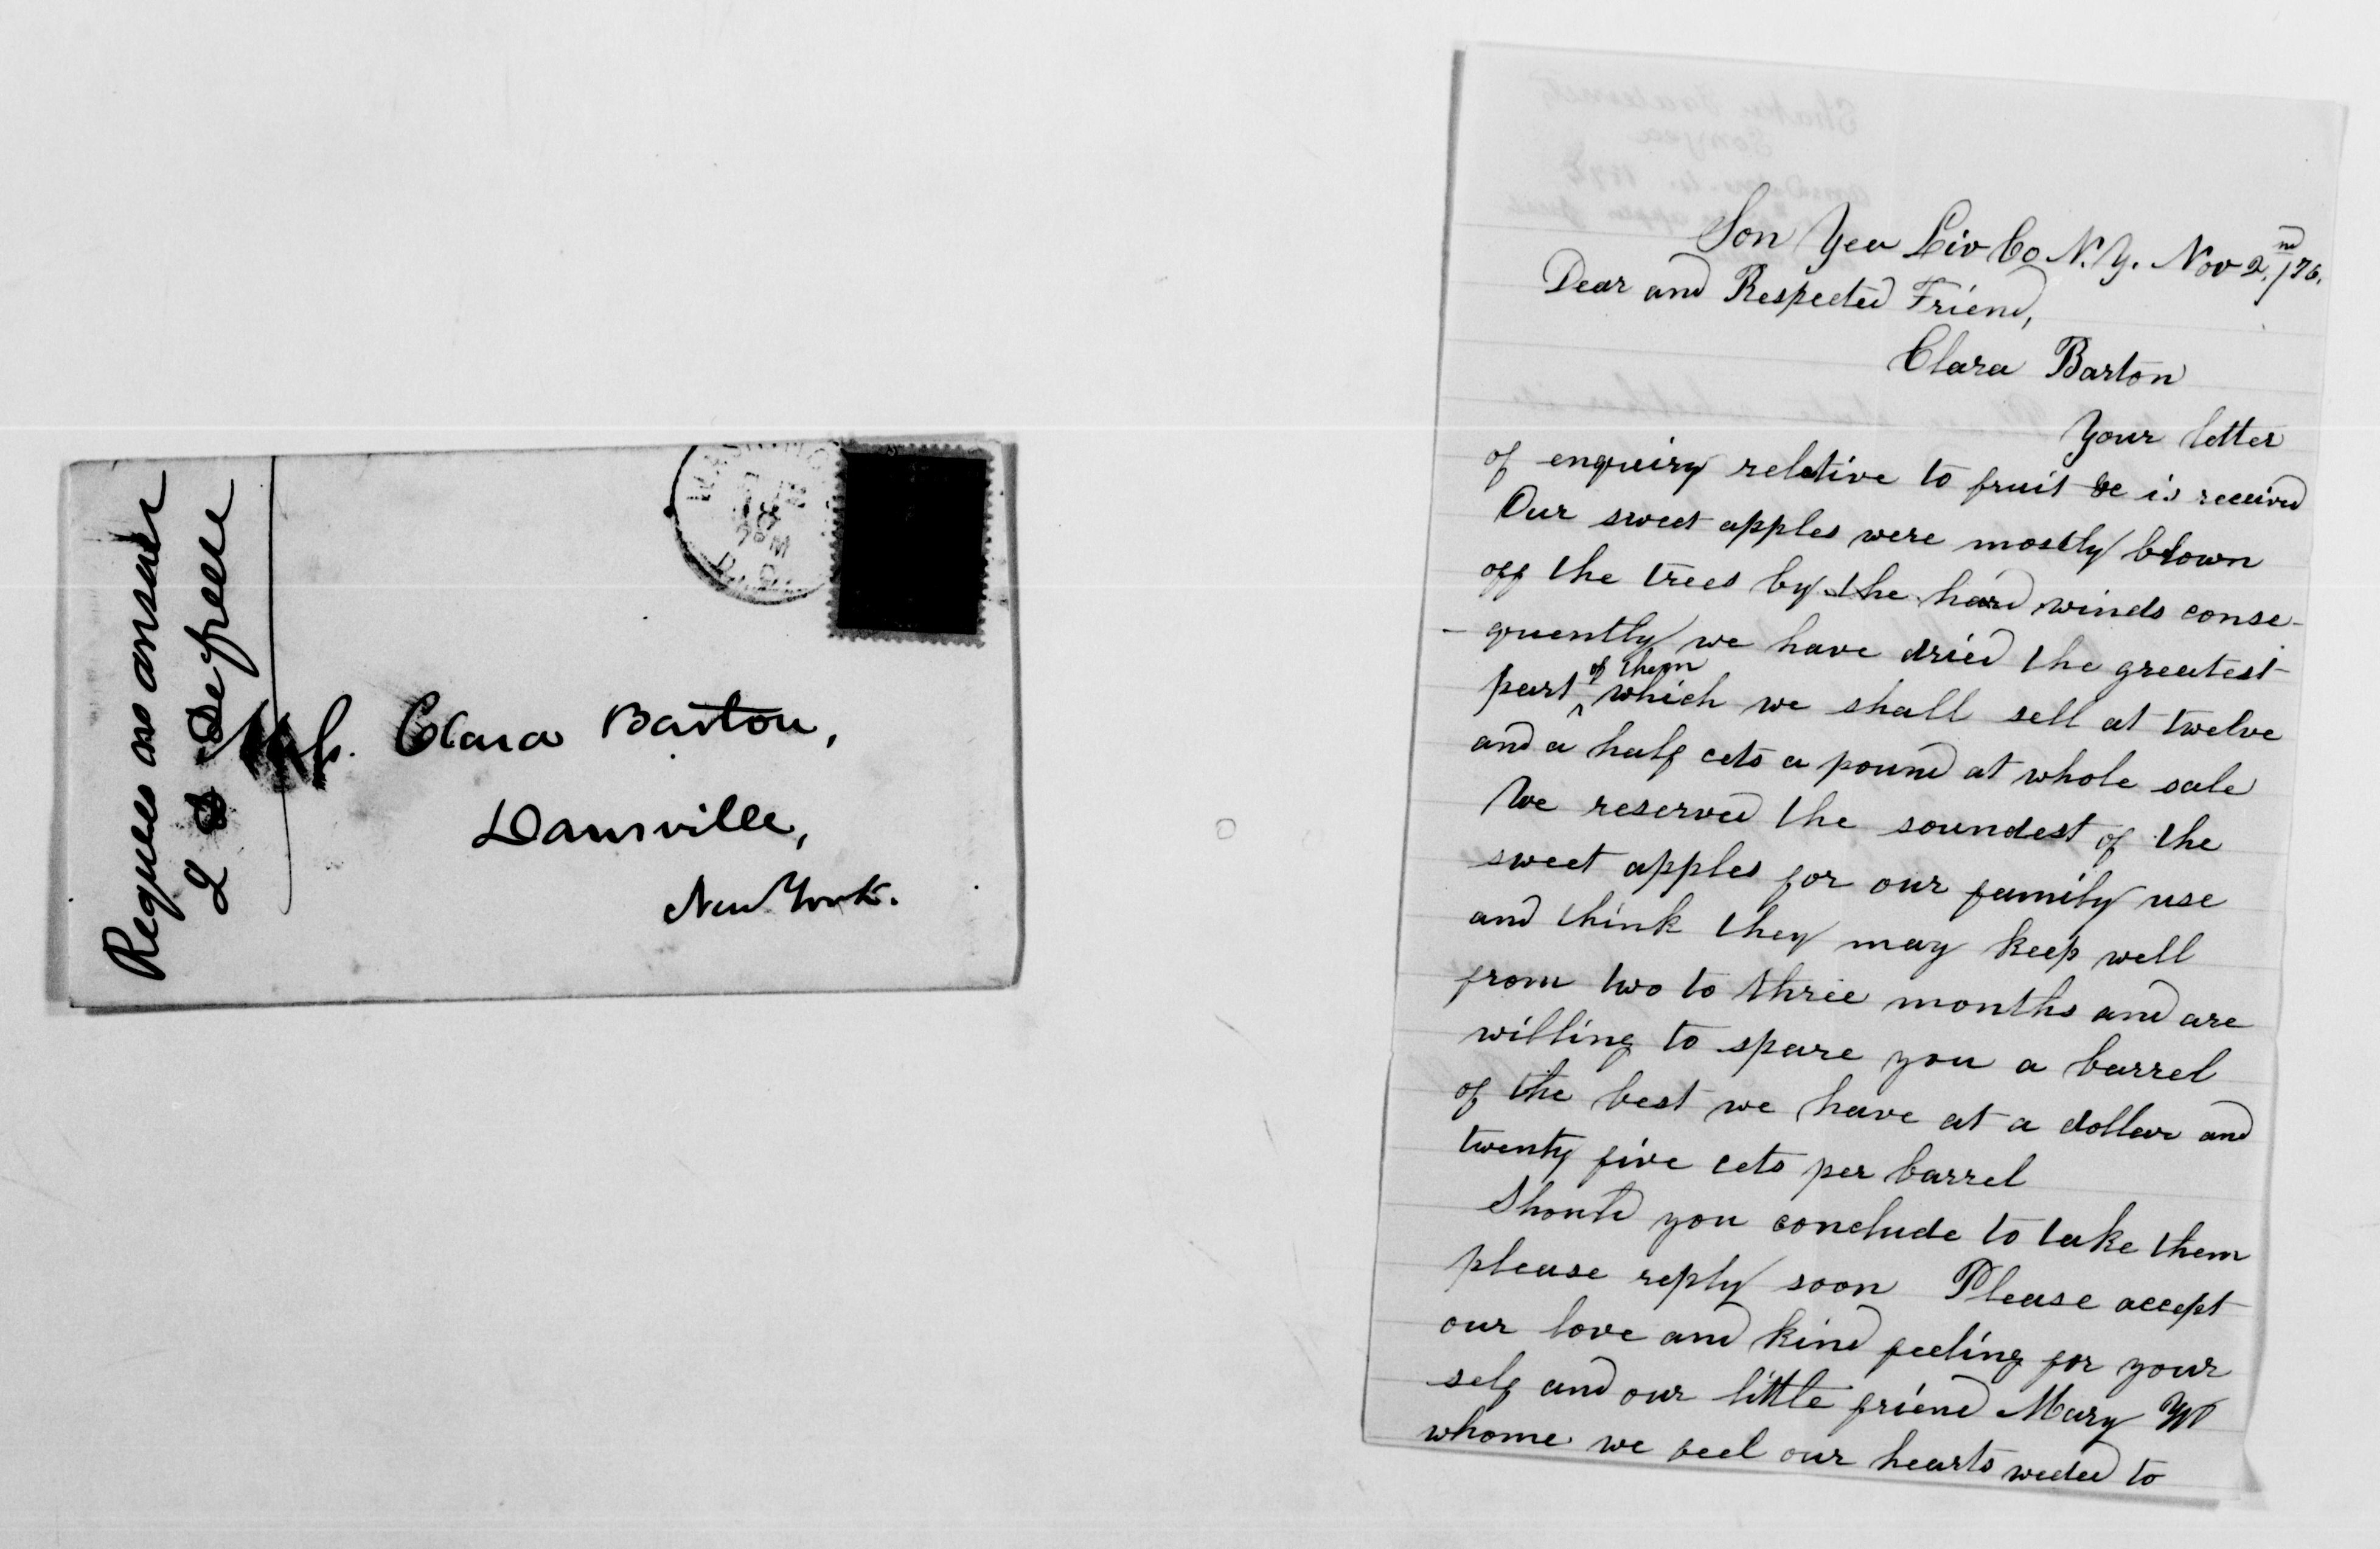 Requires no answer
L S Defree
Clara Barton,
Dansville,
New York.
Son Yea Liv Co N.Y. Nov 2,nd /76.
Dear and Respected Friend,
Clara Barton
Your letter
of enquiry relative to fruit &c is received
Our sweet apples were mostly blown
off the trees by the hard winds conse-
-quently we have dried the greatest
part of them which we shall sell at twelve
and a half cets a pound at whole sale
We reserved the soundest of the
sweet apples for our family use
and think they may keep well
from two to three months and are
willing to spare you a barrel
of the best we have at a dollar and
twenty five cets per barrel
Should you conclude to take them
please reply soon Please accept
our love and kind feeling for your
self and our little friend Mary
whome we feel our hearts weded to